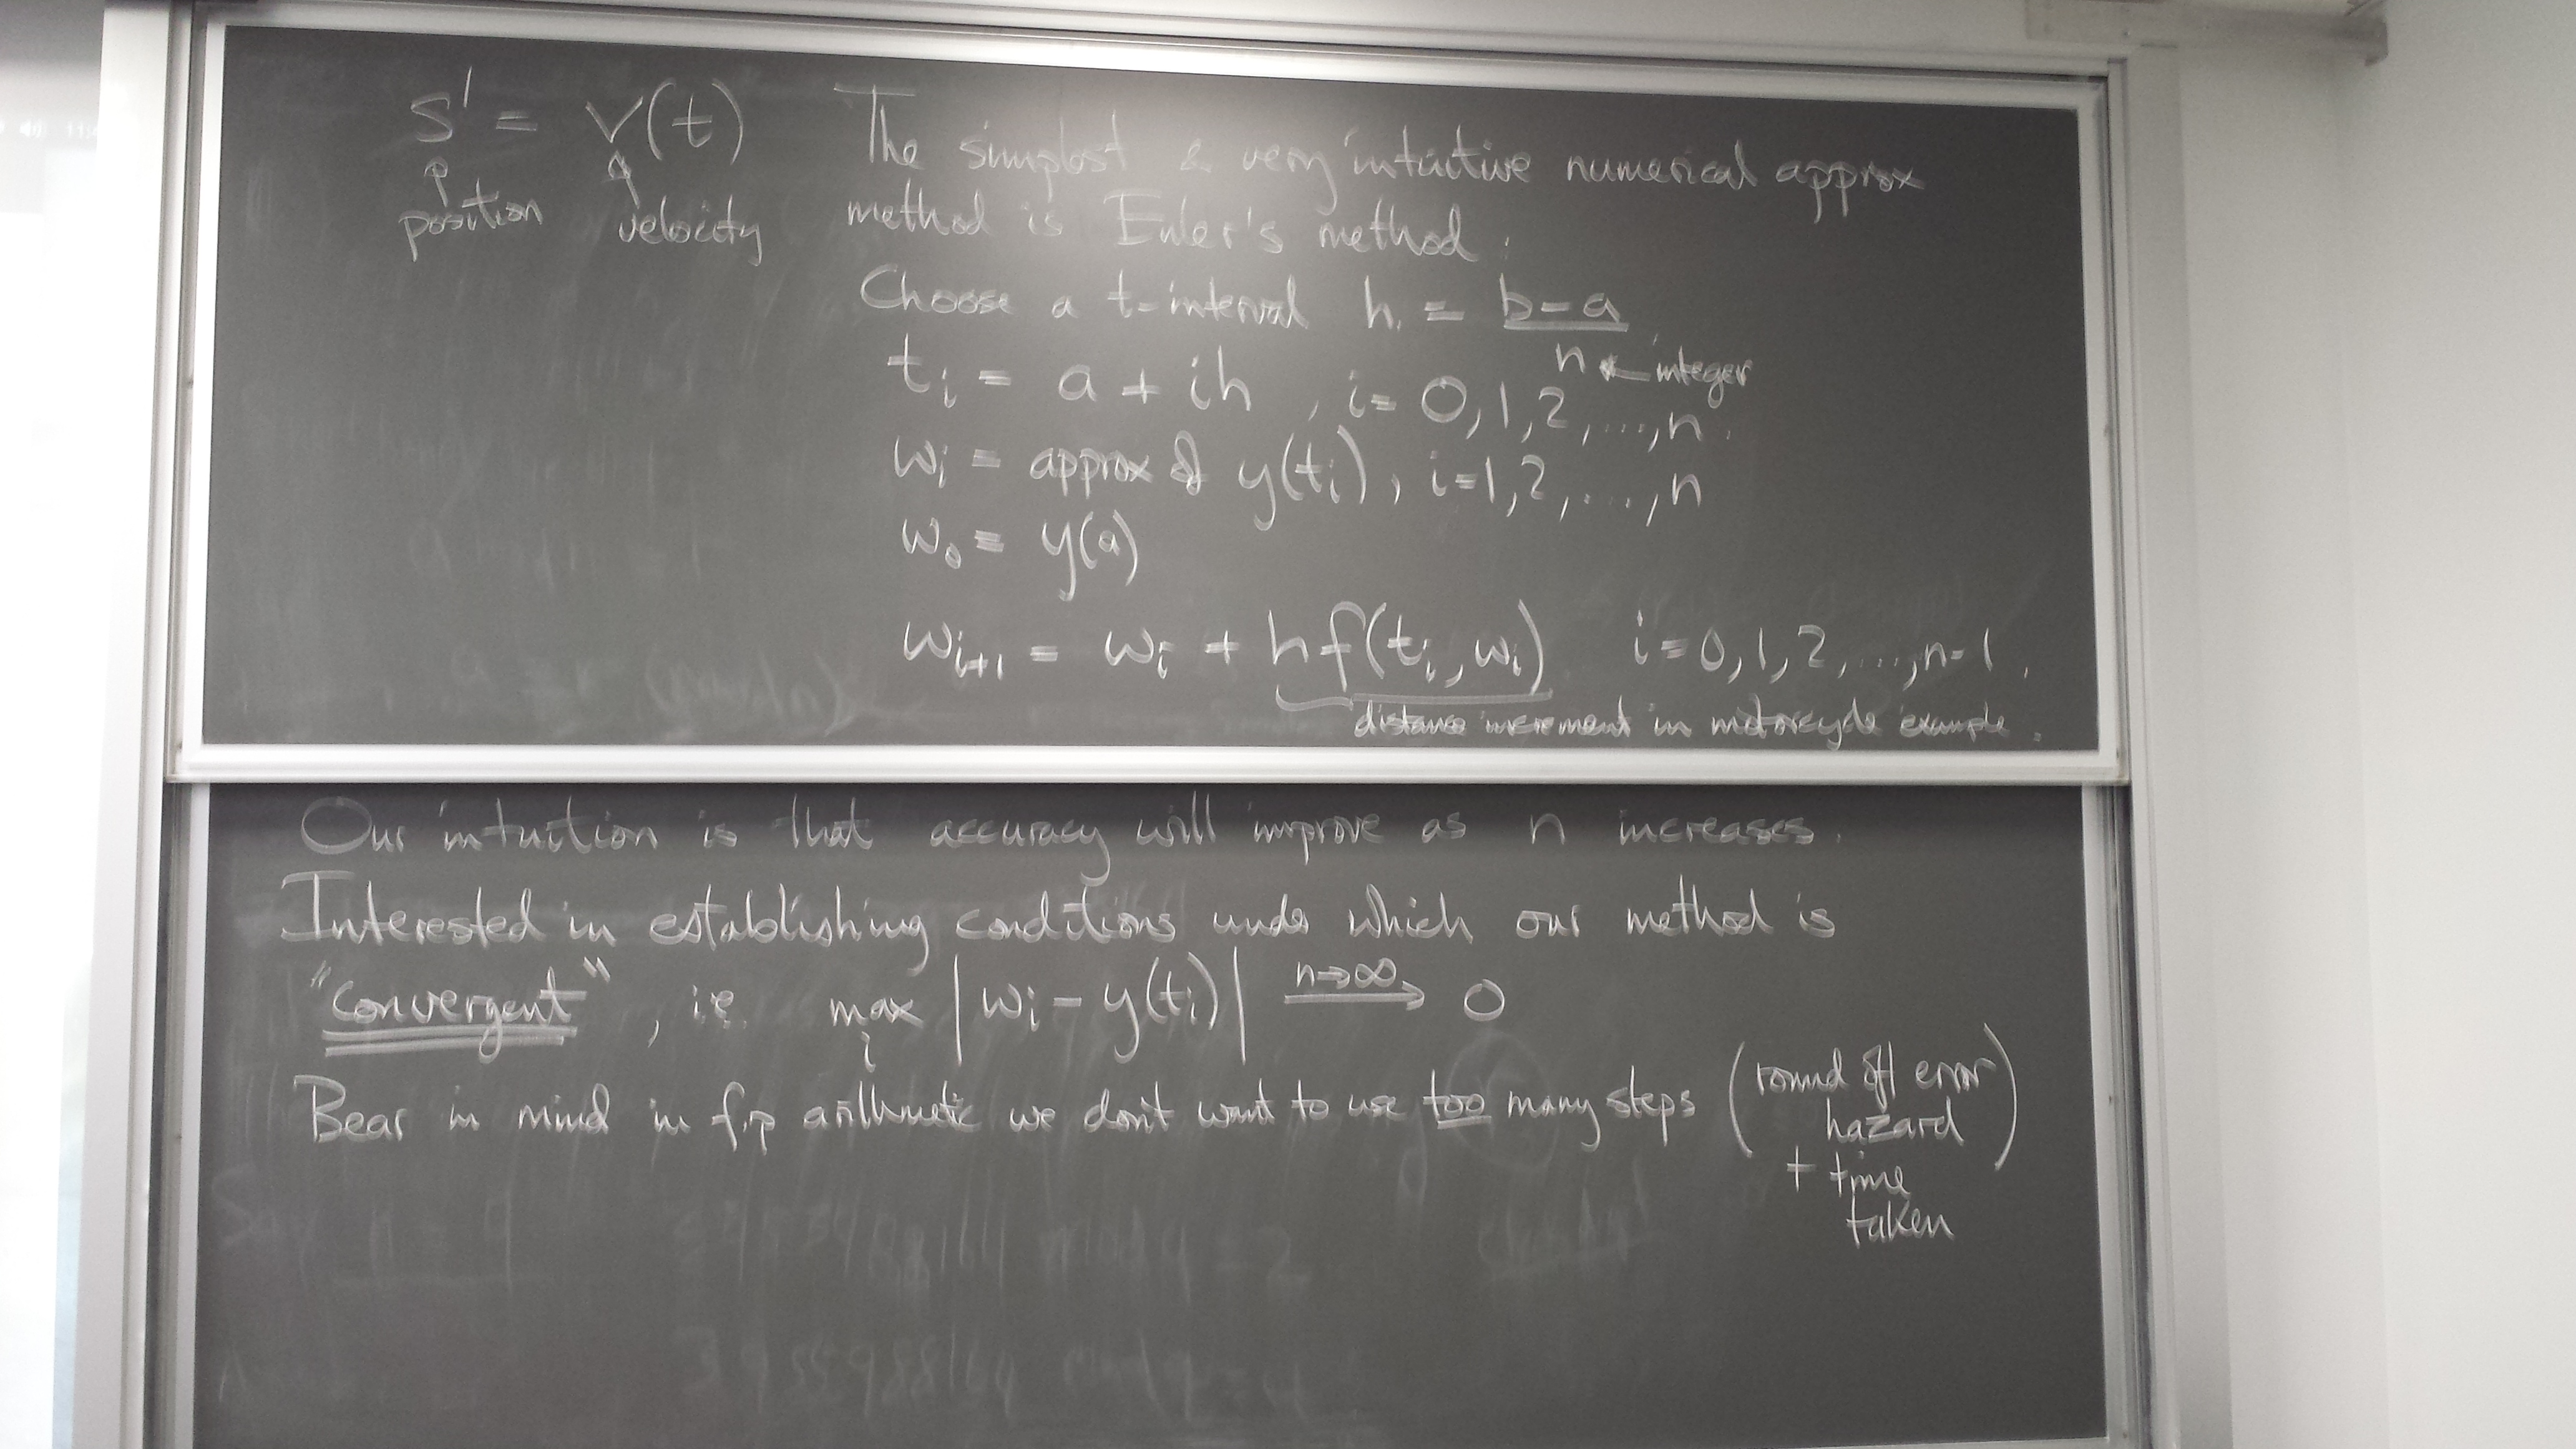 s' = v(t)
position velocity
The simplest & very intuitive numerical approx
method is Euler's method:
Choose a t-interval h = b-a
n ← integer
tᵢ = a + ih , i = 0,1,2,...,n.
wᵢ = approx of y(tᵢ), i=1,2,...,n
w₀ = y(a)
wᵢ₊₁ = wᵢ + hf(tᵢ,wᵢ) i=0,1,2,...,n-1.
distance increment in motorcycle example.
Our intuition is that accuracy will improve as n increases.
Interested in establishing conditions under which our method is
"convergent", i.e. max |wᵢ - y(tᵢ)| n→∞ → 0
i
Bear in mind in f.p arithmetic we don't want to use too many steps (round off error
hazard)
+ time
taken